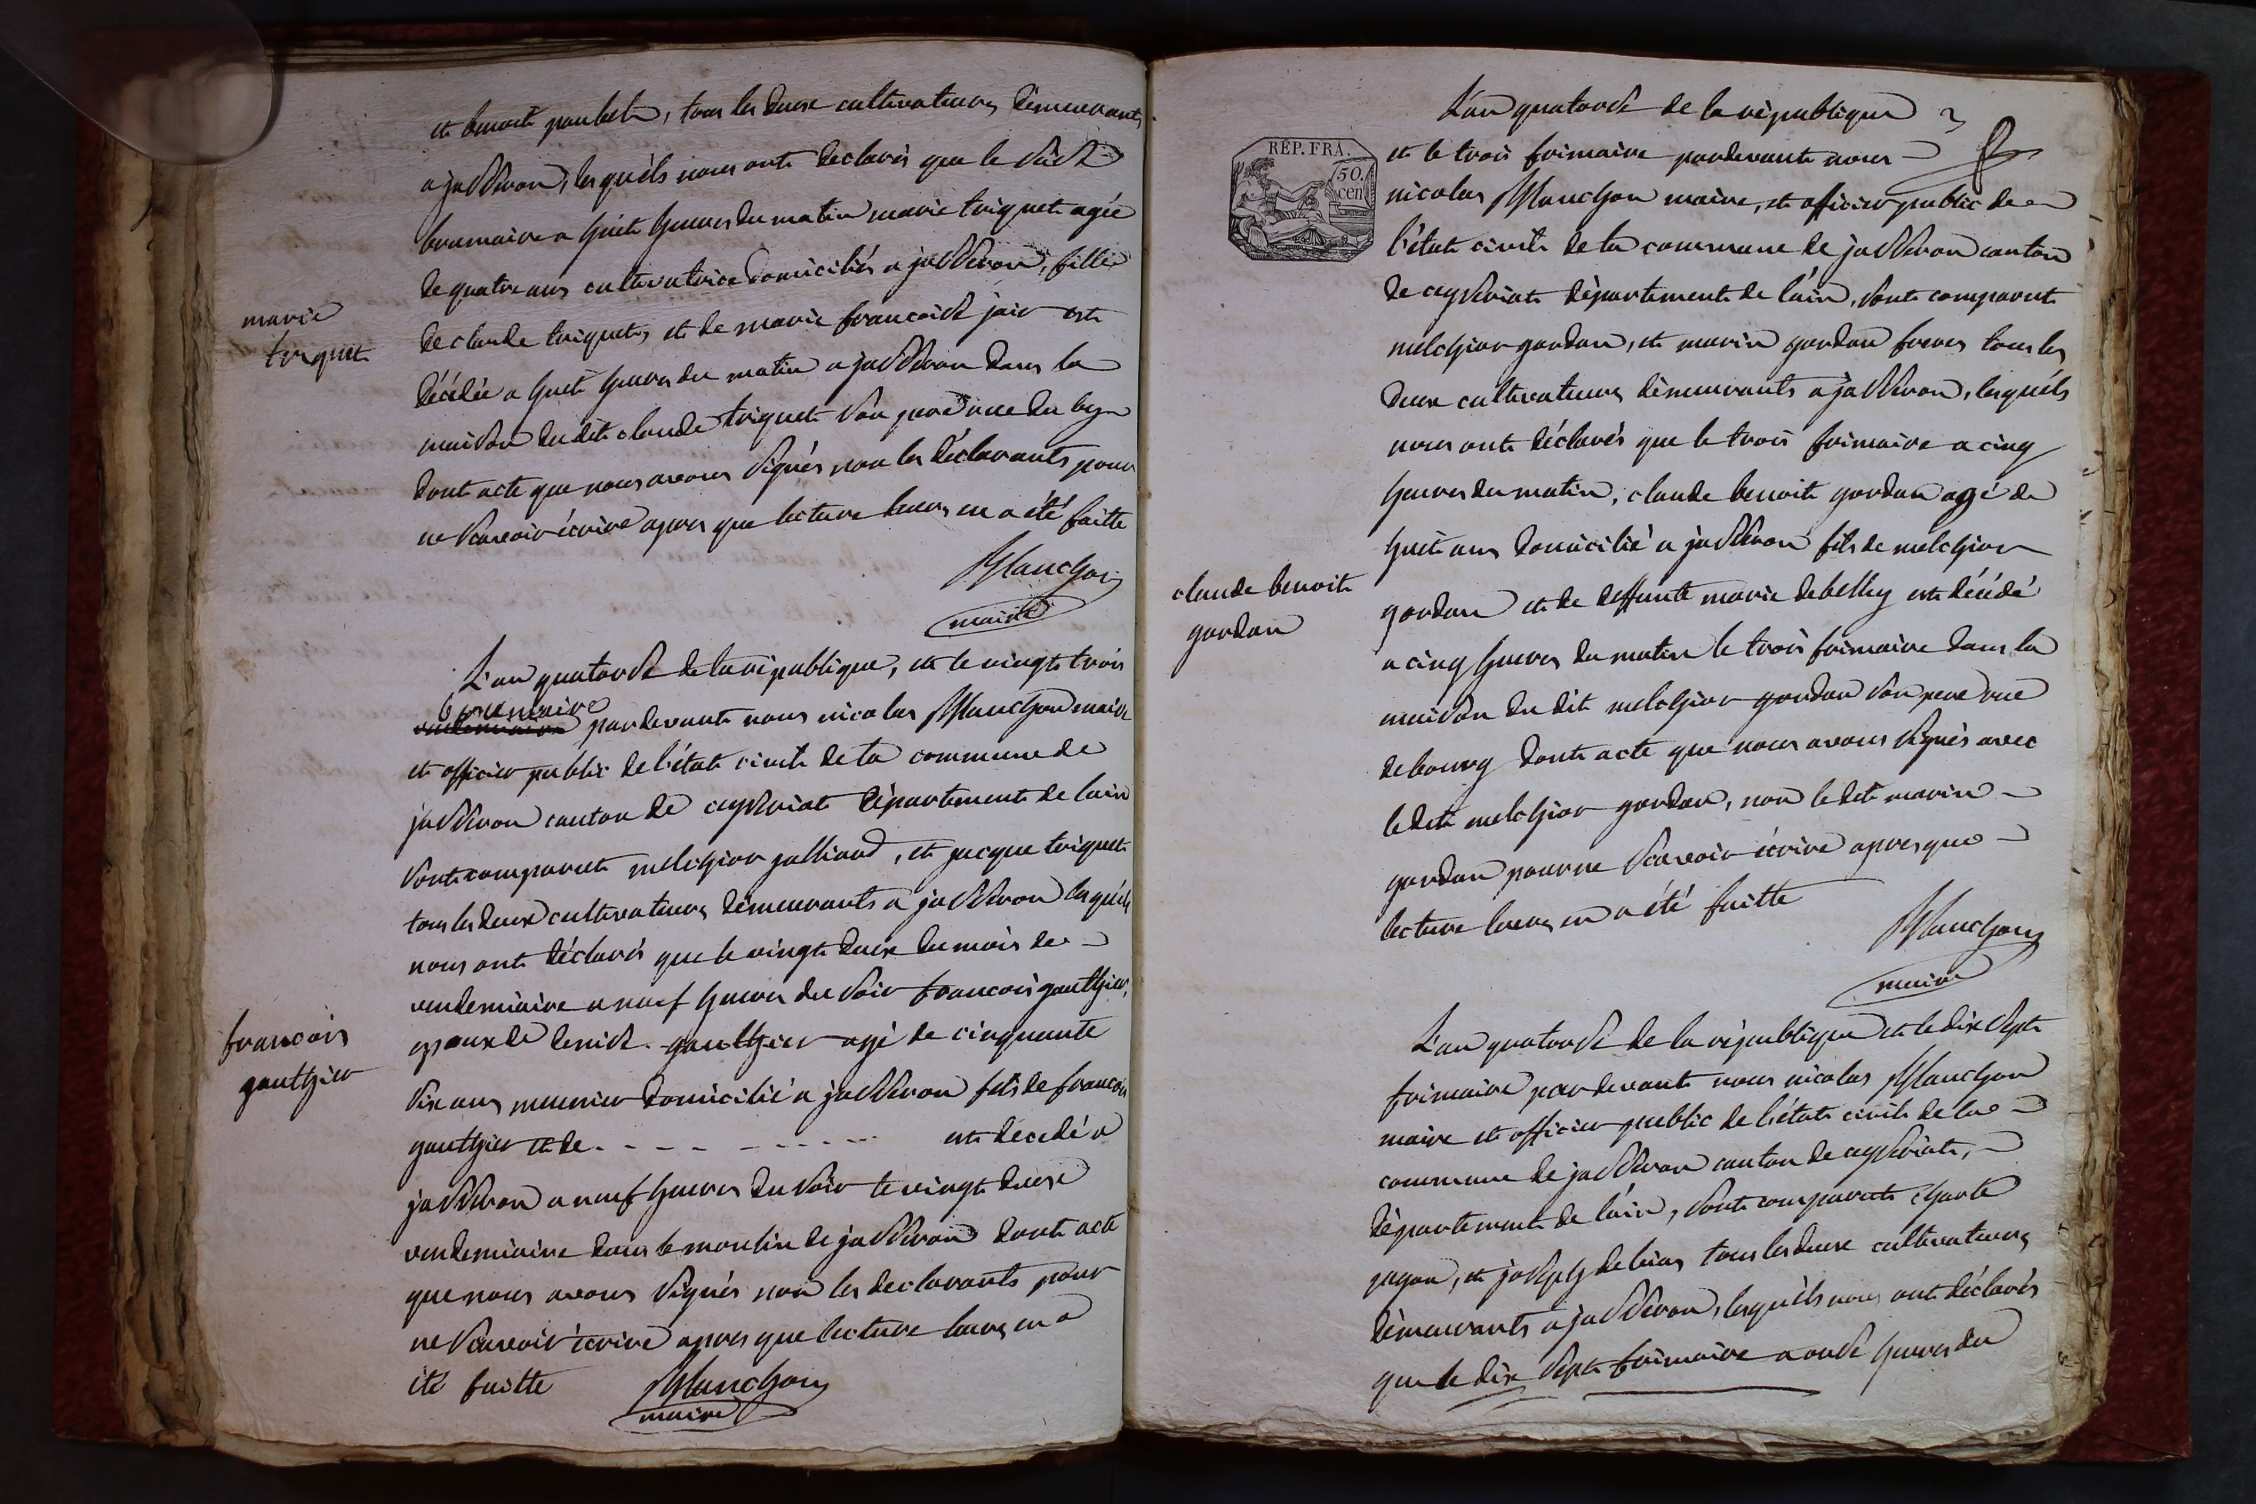 et benoit paubel, tous les deux cultivateurs demeurants
a jasseron, lesquèls nous ont declarés que le
brumaire a huit heures du matin marie triquet agée
de quatre ans cultivatrice domiciliés a jasseron, fille
de claude triquet, et de marie francoise jair est
décédée a huit heures du matin a jasseron dans la
maison dudit claude triquet son pere rue du
dont acte que nous avons signés non les déclarants pour
ne scavoir écrire apres que lecture leurs en a été faitte
Planchon
maire
marie
triquet
L'an quatorse de la république, et le vingt trois
brumaire
vendemiaire pardevant nous nicolas Planchon maire
et officier public de l'état civile de la commune de
jasseron canton de ceyseriat département de lain
sont comparut melchior jalliard, et jacque triquet
tous les deux cultivateurs demeurants a jasseron lesquèls
nous ont déclarés que le vingt deux du mois de
vendemiaire a neuf heures du soir francois gauthier,
epoux de denise gauthier agé de cinquante
six ans meunier domicilié a jasseron fils de francois
gauthier et de - - - - - - - - - est décedé a
jasseron a neuf heures du soir le vingt deux
vendemiaire dans le moulin de jasseron dont acte
que nous avons signés non les declarants pour
ne scavoir écrire apres que lecture leurs en a
été faitte
Planchon
maire
francois
gauthier
RÉP. FRA.
50.
cen
L'an quatorse de la république
et le trois frimaire pardevant nous
nicolas Planchon maire, et officier public de
l'état civile de la commune de jasseron canton
de ceyseriat département de l'ain, sont comparut
melchior gordan, et marin gordan freres tous les
deux cultivateurs demeurants a jasseron, lesquèls
nous ont déclarés que le trois frimaire a cinq
heures du matin, claude benoit gordan agé de
huit ans domicilié a jasseron fils de melchior
gordan et de deffunte marie debelley est décédé
a cinq heures du matin le trois frimaire dans la
maison du dit melchior gordan son pere rue
de bourg dont acte que nous avons signés avec
ledit melchior gordan, non ledit marin
gordan pour ne scavoir écrire apres que
lecture leurs en a été faitte
Planchon
maire
claude benoit
gordan
L'an quatorse de la république et le dix sept
frimaire par devant nous nicolas Planchon
maire et officier public de l'état civile de la
commune de jasseron canton de ceyseriat,
département de l'ain, sont comparut charle
pagon, et joseph debias tous les deux cultivateurs
demeurants a jasseron, lesquèls nous ont déclarés
que le dix sept frimaire a onse heures du